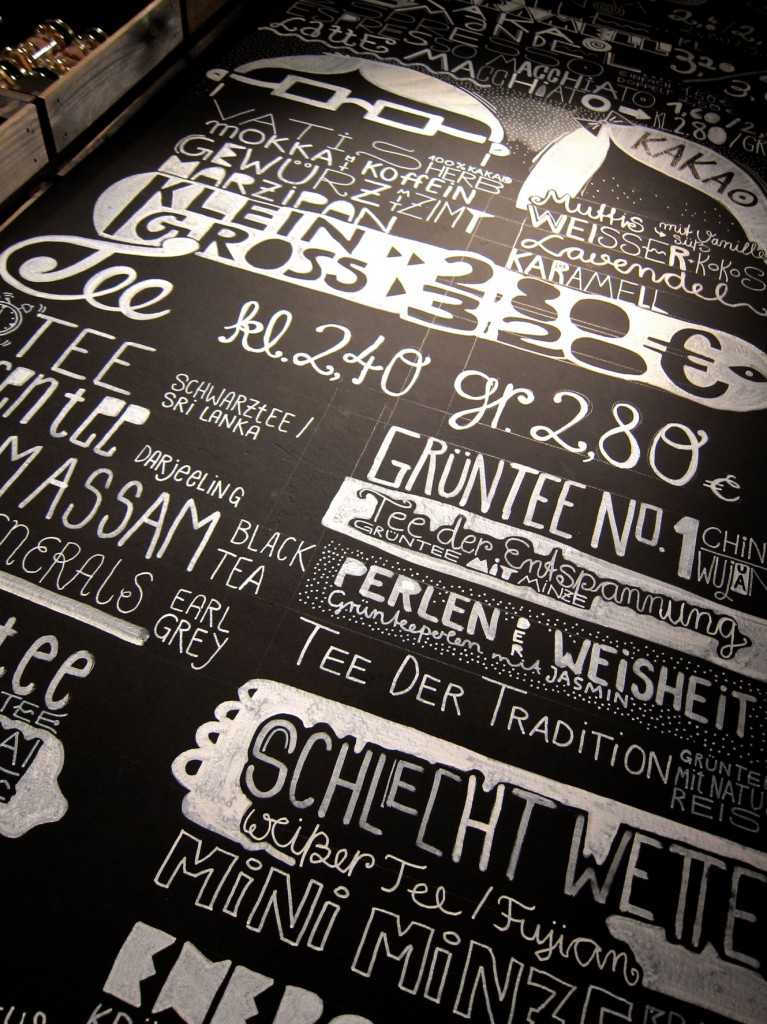 ESPRESSO
ESPRESSO MACCHIATO
Latte MACCHIATO → kl. 2.80/GR
3,20
KAKAO
VATIS HERB
100% KAKAO
MOKKA MIT KOFFEIN
GEWÜRZ MIT ZIMT
MARZIPAN
Muttis
mit Vanille
süß
WEISSER KOKOS
Lavendel
KARAMELL
KLEIN 2.80
GROSS 3.20 €
Tee
kl. 2,40 gr. 2,80 €
TEE
SCHWARZTEE /
SRI LANKA
DARJEELING
MASSAM
BLACK
TEA
EARL
GREY
GRÜNTEE NO. 1
Tee der Entspannung
GRÜNTEE MIT MINZE
PERLEN DER WEISHEIT
Grünteeperlen mit JASMIN
TEE DER TRADITION
MIT
REIS
tee
TEE
SCHLECHT WETTE
weißer Tee / Fujian
MINI MINZE